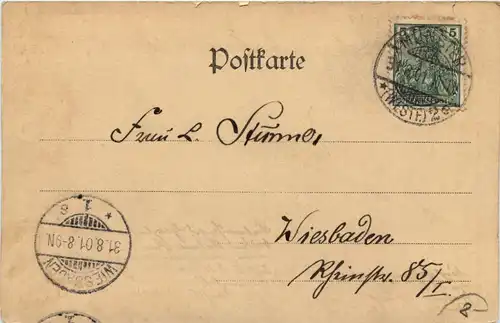 Postkarte
5
Frau L. Sturmer
Wiesbaden
Rheinstr. 85/I.
(WESTF.)
WIESBADEN
31.8.01.8-9N.
1.
2